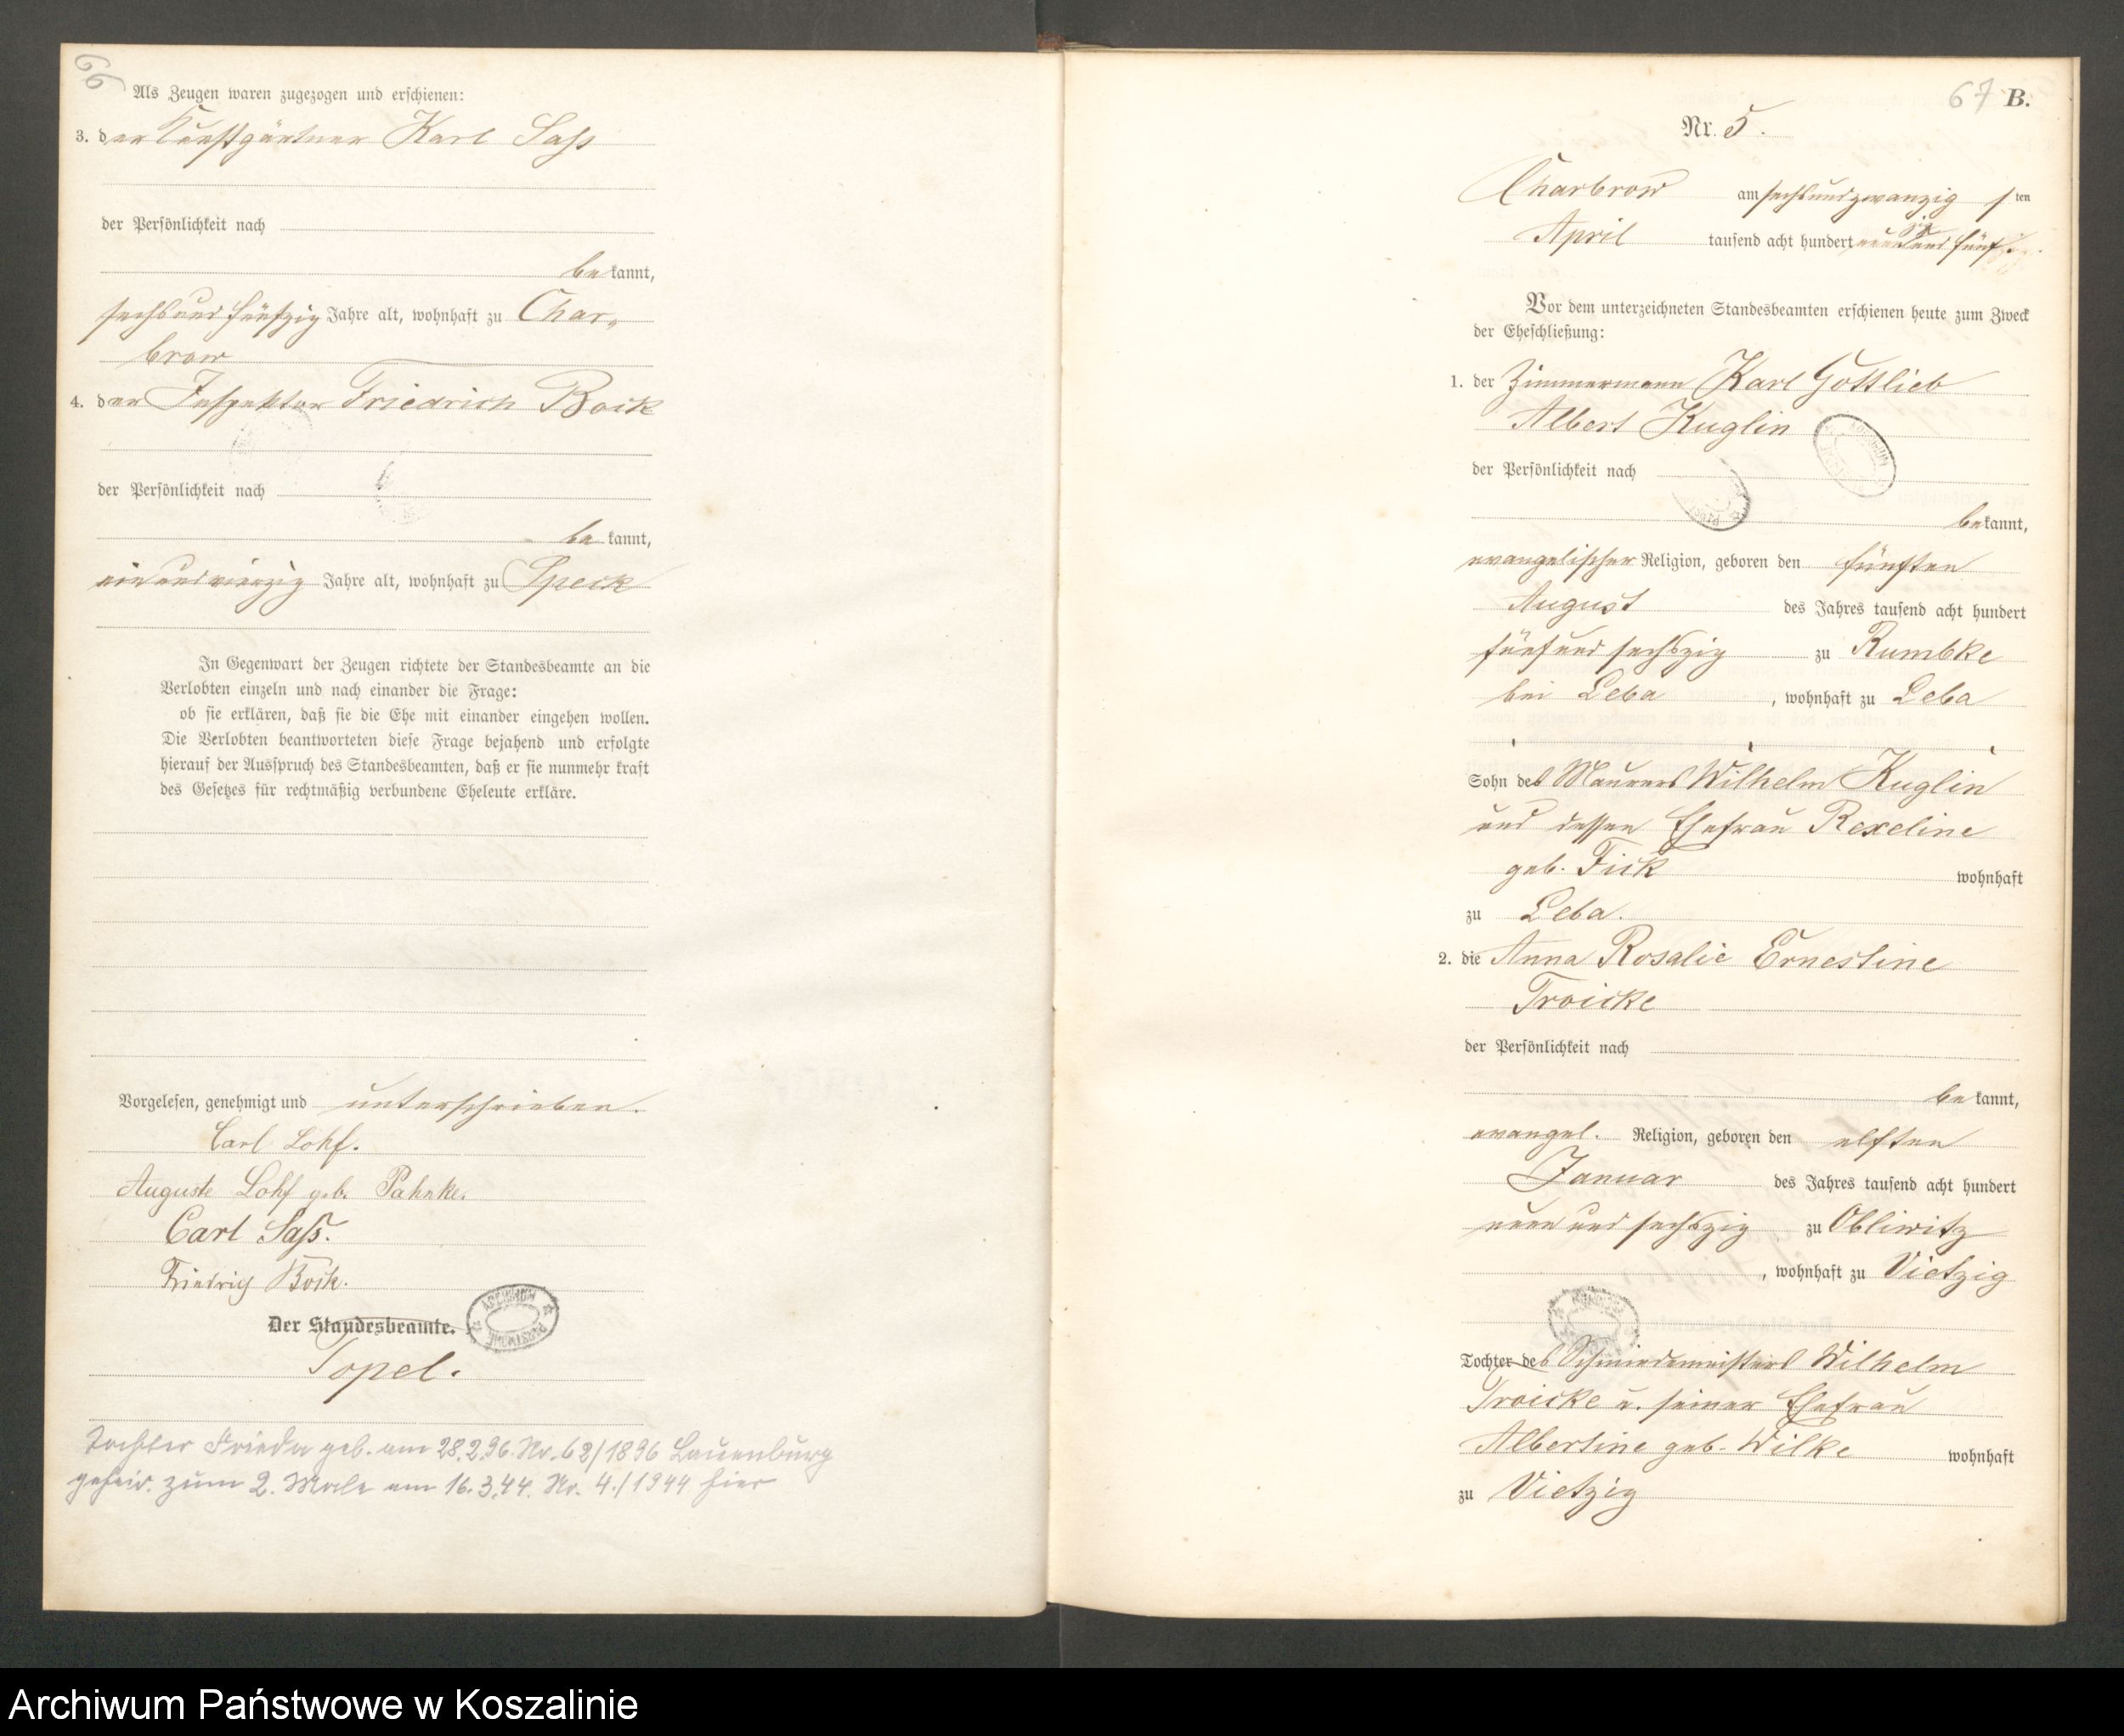 66
Als Zeugen waren zugezogen und erschienen:
3. der Kunstgärtner Karl Saß
der Persönlichkeit nach
bekannt,
sechsundfünfzig Jahre alt, wohnhaft zu Char„
brow
4. der Inspektor Friedrich Bock
der Persönlichkeit nach
bekannt,
einundvierzig Jahre alt, wohnhaft zu Speck
In Gegenwart der Zeugen richtete der Standesbeamte an die
Verlobten einzeln und nach einander die Frage:
ob sie erklären, daß sie die Ehe mit einander eingehen wollen.
Die Verlobten beantworteten diese Frage bejahend und erfolgte
hierauf der Ausspruch des Standesbeamten, daß er sie nunmehr kraft
des Gesetzes für rechtmäßig verbundene Eheleute erkläre.
Vorgelesen, genehmigt und unterschrieben.
Carl Lohf.
Auguste Lohf geb. Pahnke.
Carl Saß.
Friedrich Bock.
Der Standesbeamte.
Topel.
Tochter Frieda geb. am 28.2.96. Nr. 62/1896 Lauenburg
geheir. zum 2. Male am 16.3.44. Nr. 4./1944 hier
67 B.
Nr. 5.
Charbrow am sechsundzwanzigsten
April tausend acht hundert neunzig und fünf.
Vor dem unterzeichneten Standesbeamten erschienen heute zum Zweck
der Eheschließung:
1. der Zimmermann Karl Gottlieb
Albert Kuglin
der Persönlichkeit nach
bekannt,
evangelischer Religion, geboren den fünften
August des Jahres tausend acht hundert
fünfundsechszig zu Rumbke
bei Leba, wohnhaft zu Leba
Sohn des Maurers Wilhelm Kuglin
und dessen Ehefrau Rexeline
geb. Fick wohnhaft
zu Leba.
2. die Anna Rosalie Ernestine
Troicke
der Persönlichkeit nach
bekannt,
evangel. Religion, geboren den elften
Januar des Jahres tausend acht hundert
neun und sechszig zu Obliwitz
, wohnhaft zu Vietzig
Tochter des Schmiedemeisters Wilhelm
Troicke u. seiner Ehefrau
Albertine geb. Wilke wohnhaft
zu Vietzig
Archiwum Państwowe w Koszalinie